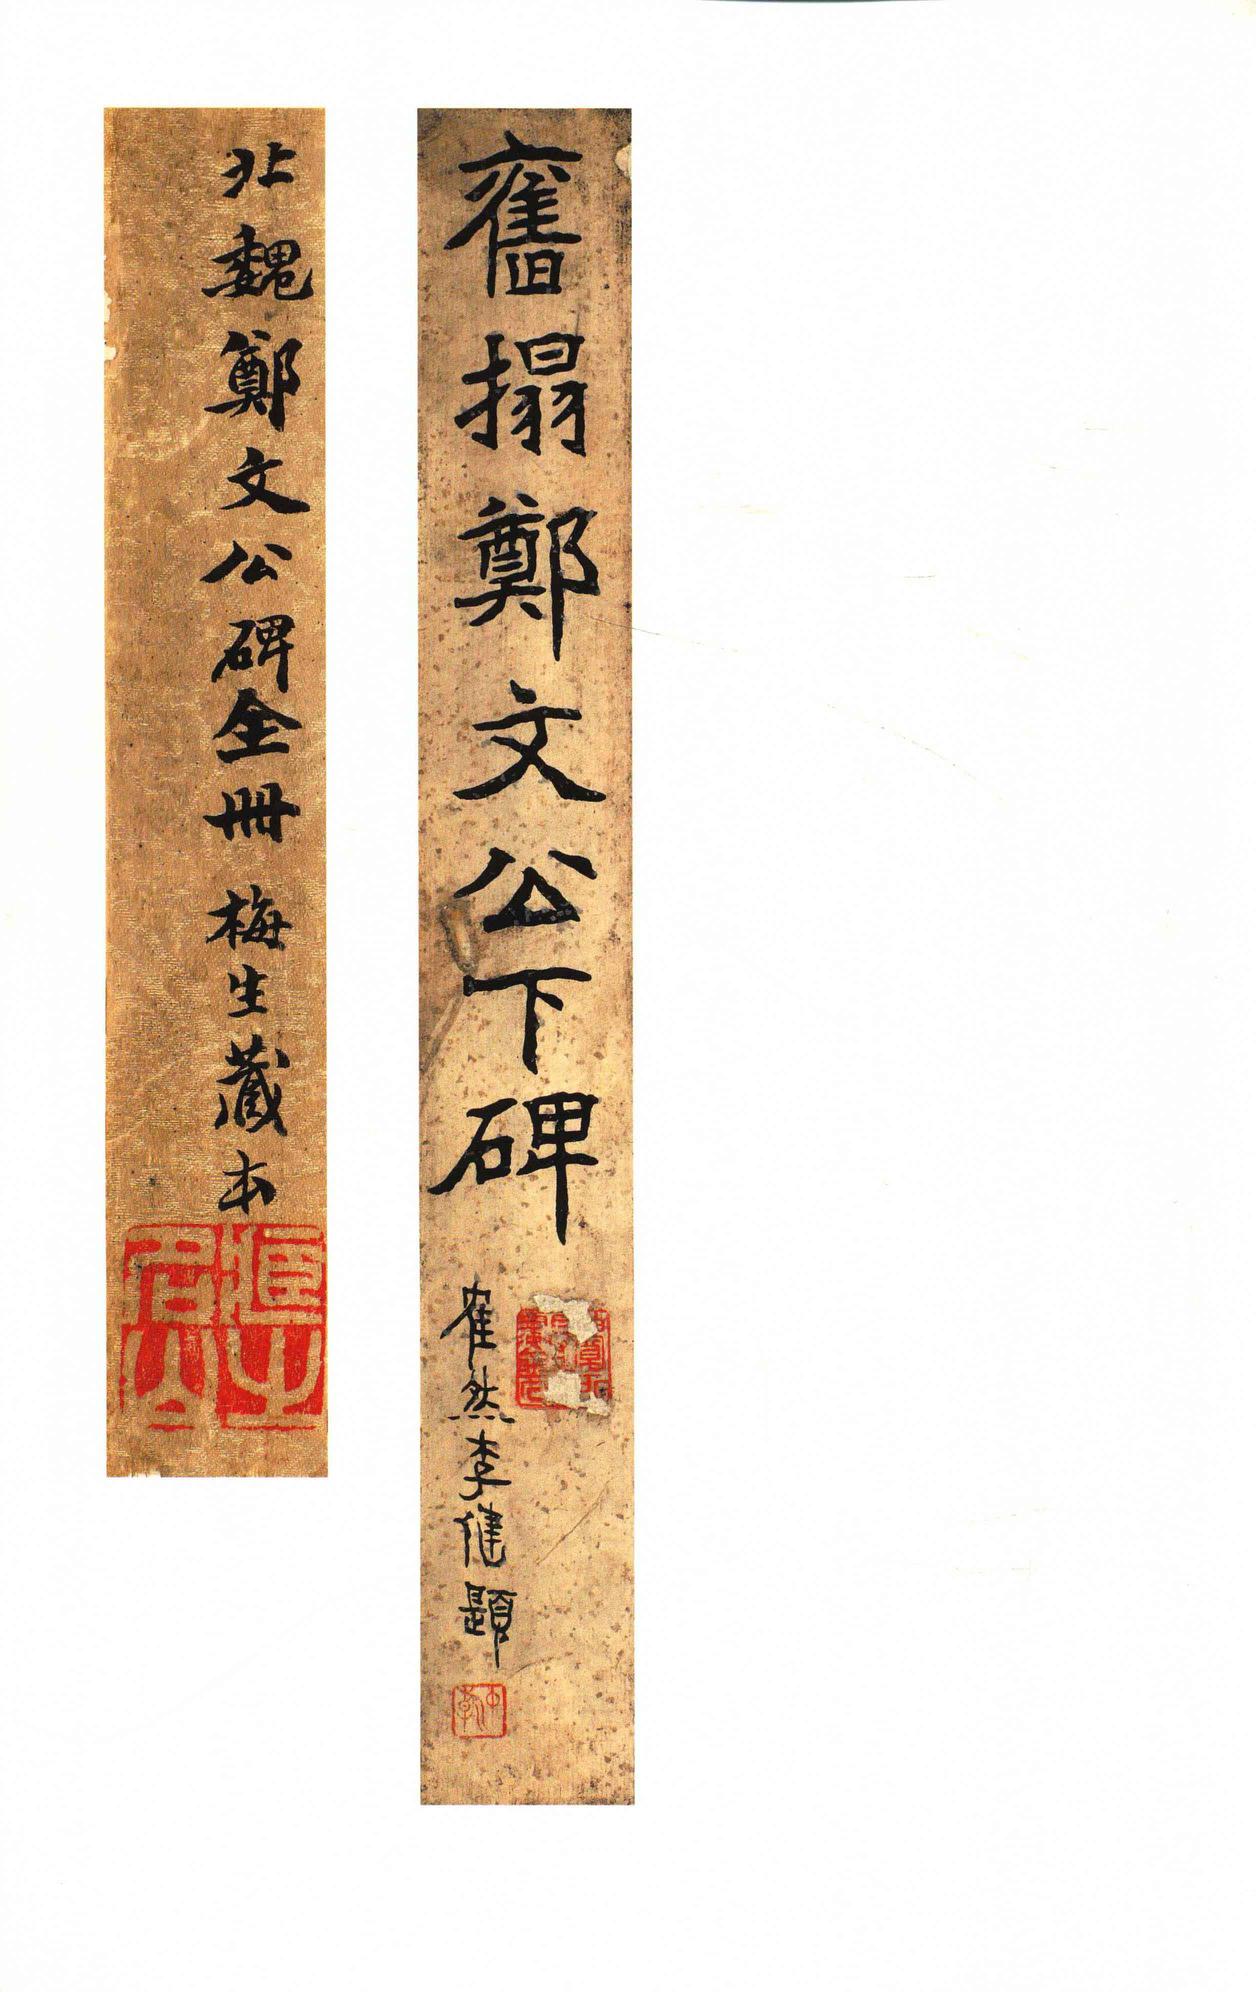 舊搨鄭文公下碑
隺然李健題
北魏鄭文公碑全冊 梅生藏本